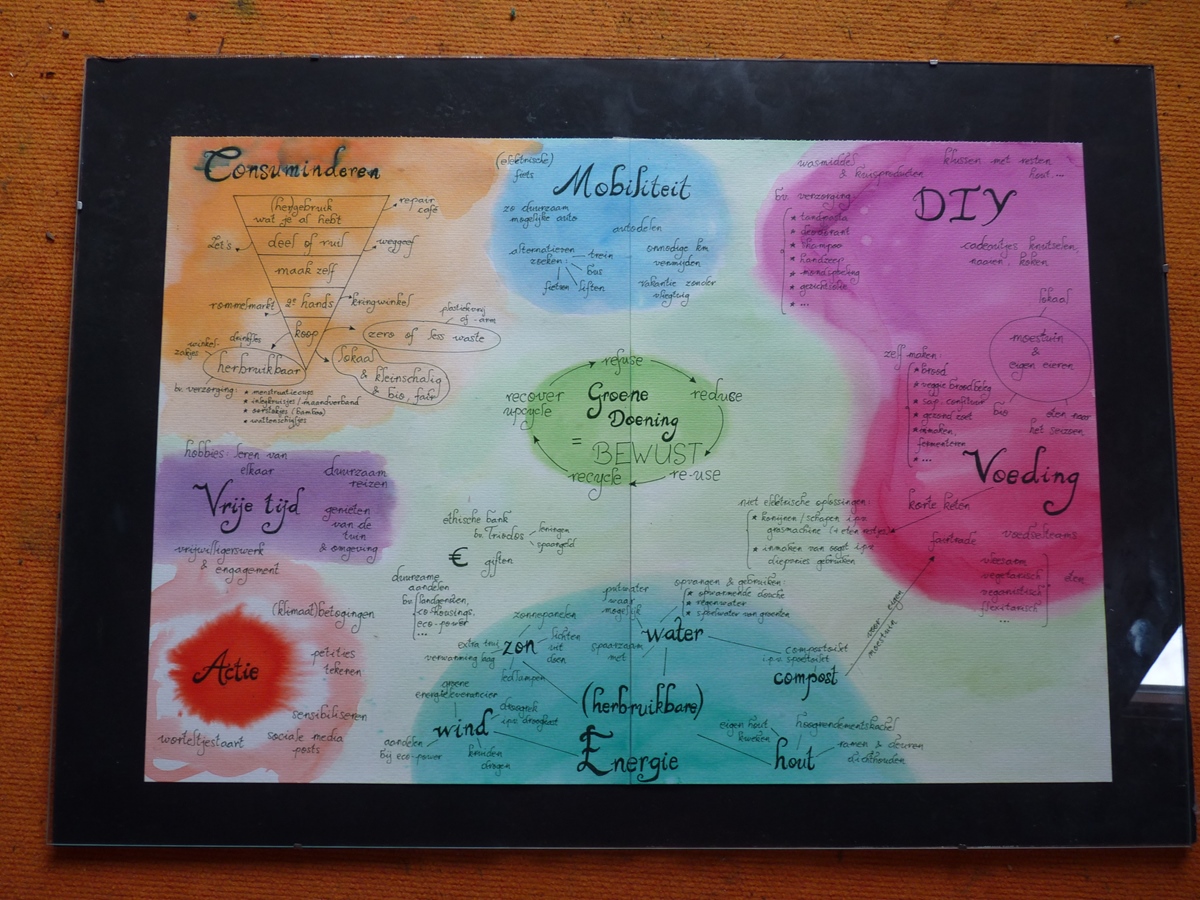 Consuminderen
(her)gebruik
wat je al hebt
repair
café
deel of ruil
Let's
weggeef
maak zelf
rommelmarkt
2e hands
kringwinkel
koop
plasticvrij
of -arm
zero of less waste
drinkfles
winkel-
zakjes
herbruikbaar
lokaal
& kleinschalig
& bio, fair
bv. verzorging:
* menstruatiecups
* inlegkruisjes / maandverband
* oorstokjes (bamboo)
* wattenschijfjes
(elektrische)
fiets
Mobiliteit
zo duurzaam
mogelijke auto
autodelen
alternatieven
zoeken:
trein
bus
liften
fietsen
onnodige km
vermijden
vakantie zonder
vliegtuig
wasmiddel
& kuisproducten
klussen met resten
hout, ...
DIY
bv. verzorging:
* tandpasta
* deodorant
* shampoo
* handzeep
* mondspoeling
* gezichtsolie
* ...
cadeautjes knutselen,
naaien, koken
lokaal
moestuin
&
eigen eieren
zelf maken:
* brood
* veggie broodbeleg
* sap, confituur
* gezond zoet
* inmaken,
fermenteren
* ...
bio
eten naar
het seizoen
Voeding
korte keten
fairtrade
voedselteams
vleesarm
vegetarisch
veganistisch
flexitarisch
...
eten
refuse
reduce
re-use
recycle
recover
upcycle
Groene
Doening
=
BEWUST
hobbies: leren van
elkaar
duurzaam
reizen
Vrije tijd
genieten
van de
tuin
& omgeving
vrijwilligerswerk
& engagement
ethische bank
bv. Triodos
leningen
spaargeld
€
giften
duurzame
aandelen
bv. landgenoten,
co-housings,
eco-power
...
niet elektrische oplossingen:
* konijnen / schapen i.p.v.
grasmachine (+ eten restjes)
* inmaken van oogst i.p.v.
diepvries gebruiken
(klimaat)betogingen
Actie
petities
tekenen
sensibiliseren
worteltjestaart
sociale media
posts
zonnepanelen
extra trui
verwarming laag
zon
lichten
uit
doen
ledlampen
groene
energieleverancier
wind
droogrek
i.p.v. droogkast
aandelen
bij eco-power
buiten
drogen
putwater
waar
mogelijk
opvangen & gebruiken:
* opwarmende douche
* regenwater
* spoelwater van groenten
water
spaarzaam
met
composttoilet
i.p.v. spoeltoilet
compost
voor eigen
moestuin
(herbruikbare)
Energie
eigen hout
kweken
hoogrendementskachel
hout
ramen & deuren
dichthouden